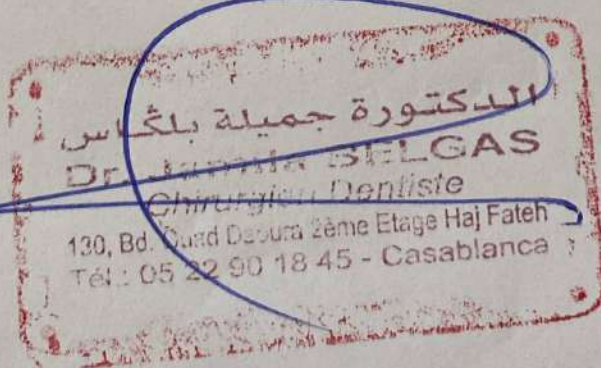 الدكتورة جميلة بلكاس
Dr. Jamila BELGAS
Chirurgien Dentiste
130, Bd. Ouad Daoura 2ème Etage Haj Fateh
Tél.: 05 22 90 18 45 - Casablanca